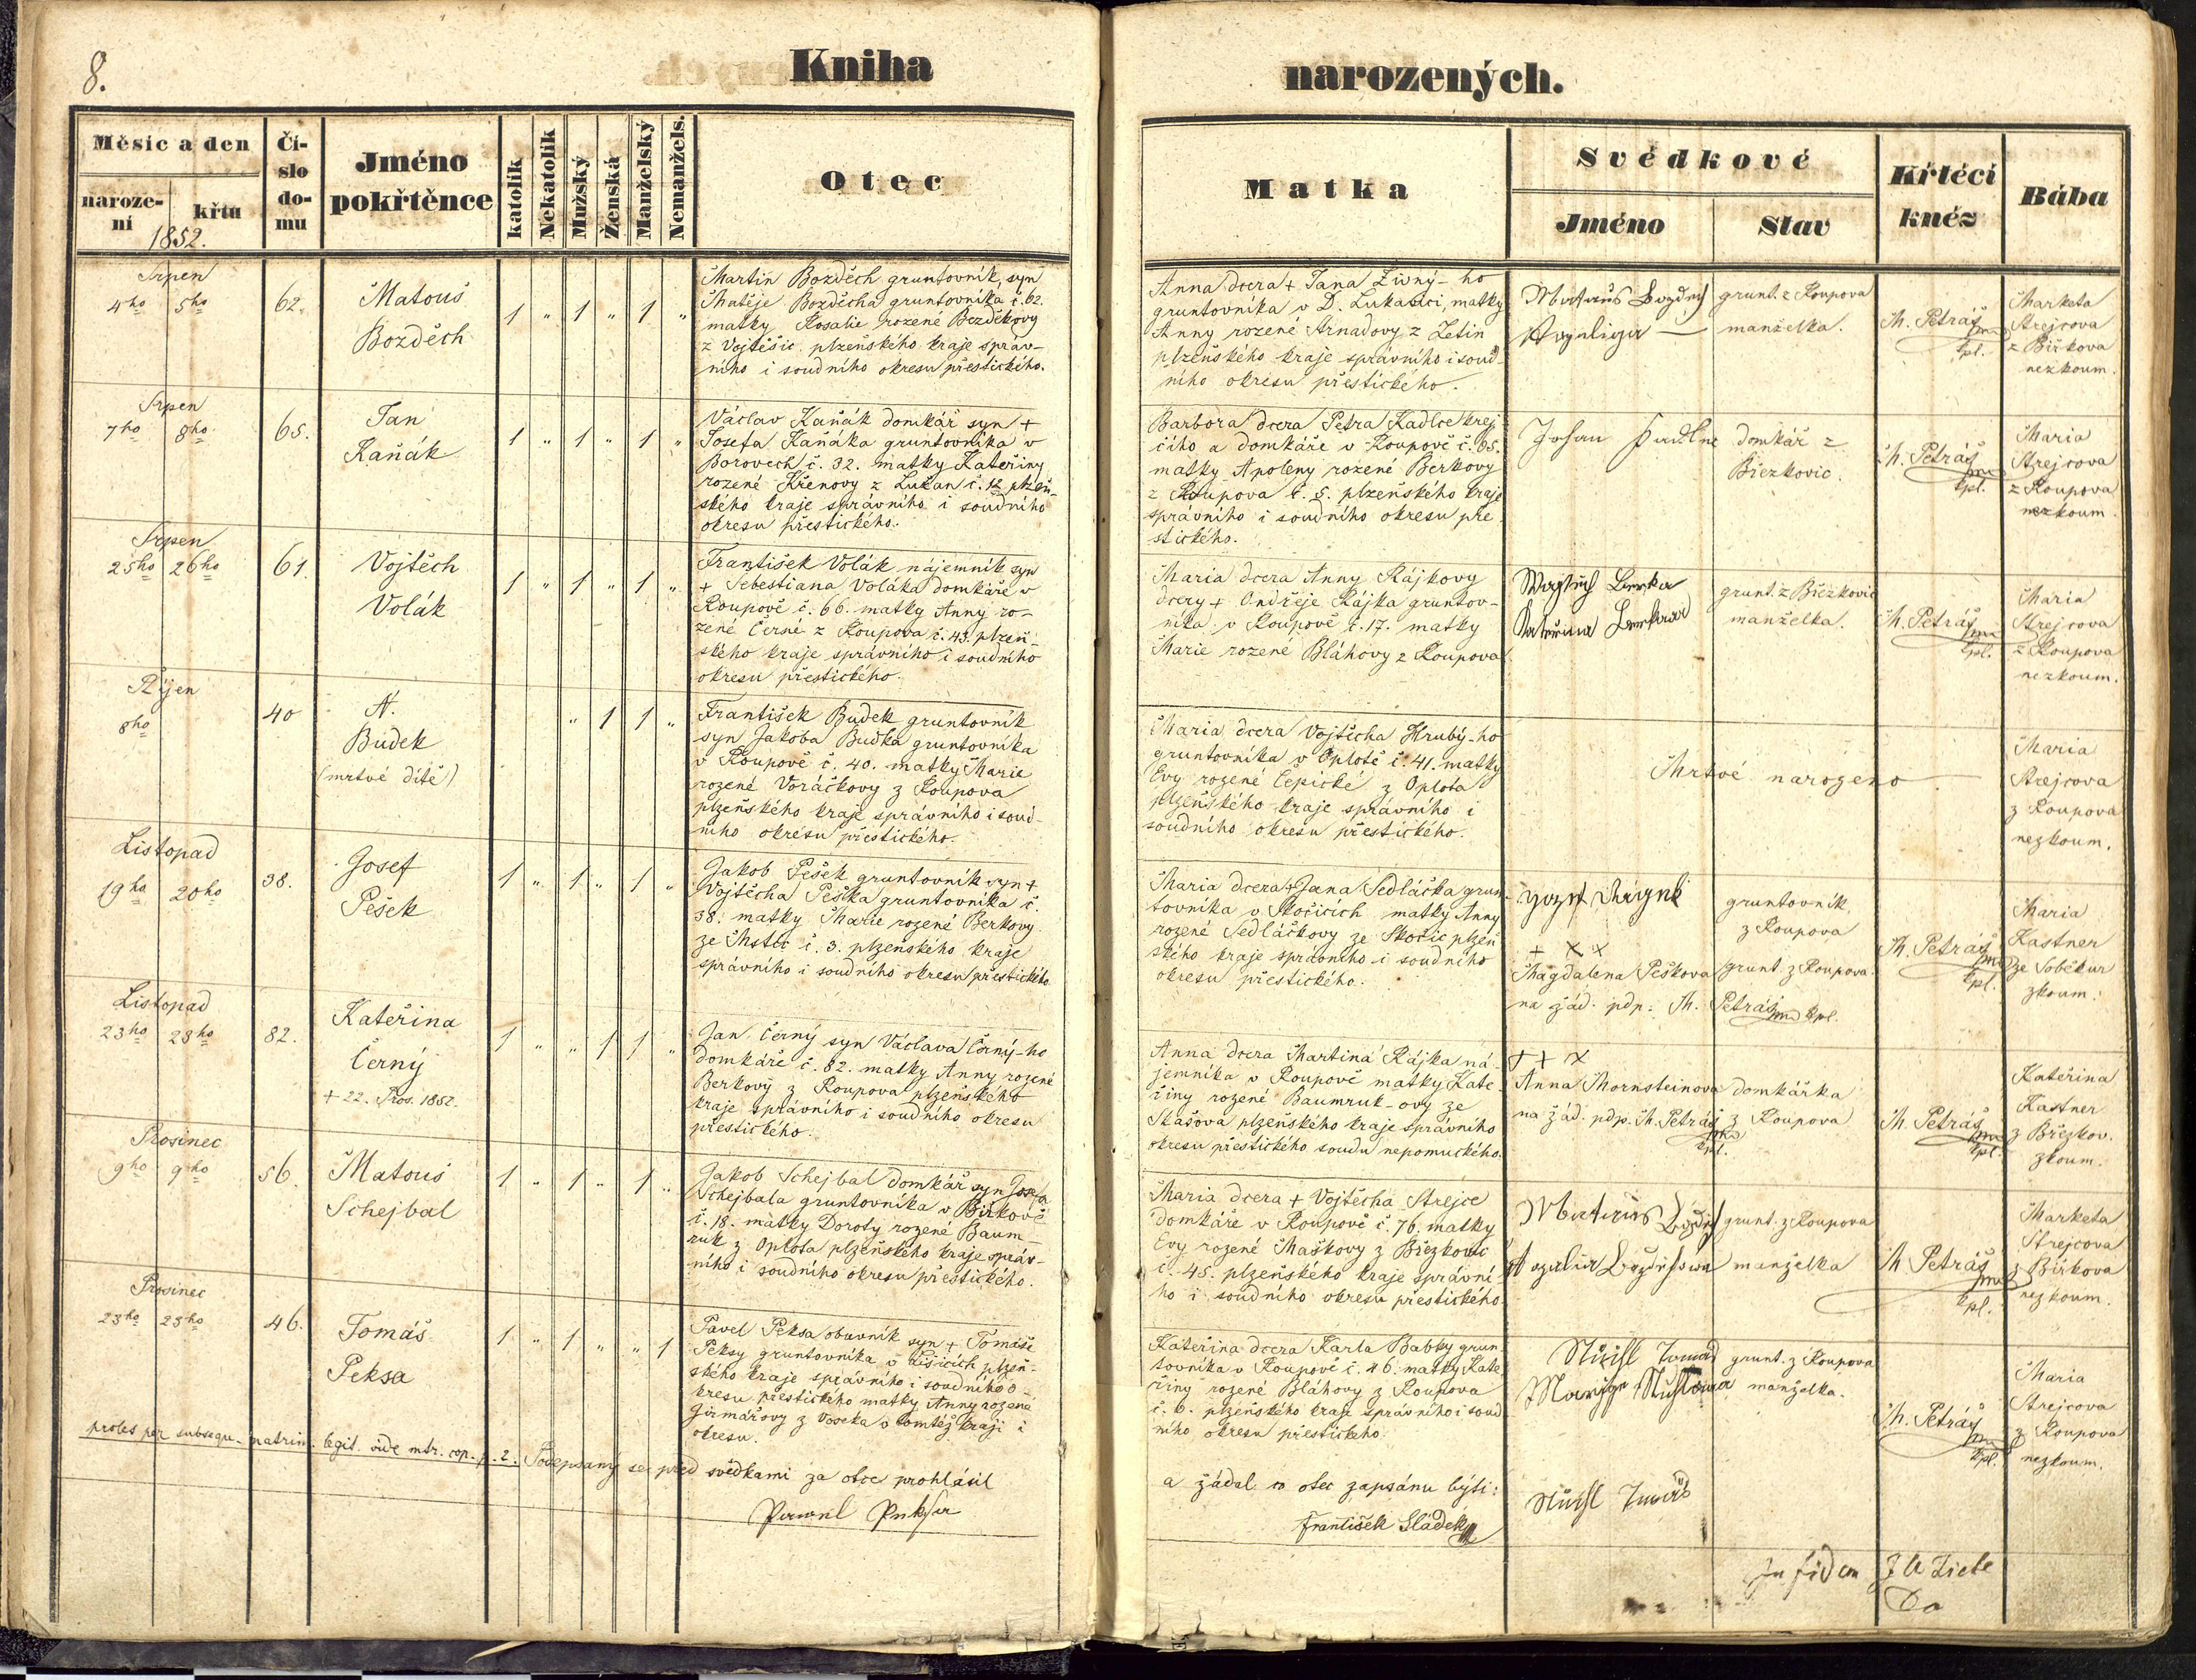 8.
Kniha
narozených.
Měsíc a den
naroze-
ní
křtu
1852.
Čí-
slo
do-
mu
Jméno
pokřtěnce
katolík
Nekatolík
Mužský
Ženská
Manželský
Nemanžels.
Otec
Matka
Svědkové
Jméno
Stav
Křtěcí
kněz
Bába
Srpen
4ho 5ho
62.
Matouš
Bozděch
1 " 1 " 1 "
Martin Bozděch gruntovník, syn
Matěje Bozděcha gruntovníka č. 62.
matky Rosalie rozené Bezděkovy
z Vojtěšic plzeňského kraje správ-
ního i soudního okresu přestického.
Anna dcera + Jana Živný-ho
gruntovníka v D. Lukavici, matky
Anny rozené Arnadovy z Letin
plzeňského kraje správního i soud-
ního okresu přestického.
Matauš Bozděch
Rozalie
grunt. z Roupova
manželka.
M. Petráš
kpl.
Marketa
Strejcova
z Biřkova
nezkoum.
Srpen
7ho 8ho
65.
Jan
Kaňák
1 " 1 " 1 "
Václav Kaňák domkář syn +
Josefa Kaňáka gruntovníka v
Borovech č. 32. matky Kateřiny
rozené Křenovy z Lukan č. 12 plzeň-
ského kraje správního i soudního
okresu přestického.
Barbora dcera Petra Kadlce krej-
čího a domkáře v Roupově č. 65.
matky Apoleny rozené Berkovy
z Roupova č. 5. plzeňského kraje
správního i soudního okresu pře-
stického.
domkář z
Březkovic.
M. Petráš
kpl.
Maria
Strejcova
z Roupova
nezkoum.
Srpen
25ho 26ho
61.
Vojtěch
Volák
1 " 1 " 1 "
František Volák nájemník syn
+ Sebestiana Voláka domkáře v
Roupově č. 66. matky Anny ro-
zené Černé z Roupova č. 43. plzeň-
ského kraje správního i soudního
okresu přestického.
Maria dcera Anny Rájkovy
dcery + Ondřeje Rájka gruntov-
níka v Roupově č. 17. matky
Marie rozené Bláhovy z Roupova
Wogtěch Berka
Kateřina Berkowa
grunt. z Břězkovic
manželka.
M. Petráš
kpl.
Maria
Strejcova
z Roupova
nezkoum.
Říjen
8ho
40
N.
Budek
(mrtvé dítě)
" 1 1 "
František Budek gruntovník
syn Jakoba Budka gruntovníka
v Roupově č. 40. matky Marie
rozené Voráčkovy z Roupova
plzeňského kraje správního i soud-
ního okresu přestického.
Maria dcera Vojtěcha Hrubý-ho
gruntovníka v Oplotě č. 41. matky
Evy rozené Čepické z Oplota
plzeňského kraje správního i
soudního okresu přestického.
Mrtvé narozeno
Maria
Strejcova
z Roupova
nezkoum.
Listopad
19ho 20ho
38.
Josef
Pešek
1 " 1 " 1 "
Jakob Pešek gruntovník syn +
Vojtěcha Peška gruntovníka č.
38. matky Marie rozené Berkovy
ze Mstic č. 3. plzeňského kraje
správního i soudního okresu přestického
Maria dcera + Jana Sedláčka grun-
tovníka v Skočicích matky Anny
rozené Sedláčkovy ze Skočic plzeň-
ského kraje správního i soudního
okresu přestického.
+ x x
Magdalena Peškova
na žád. pdp. M. Petráš kpl.
gruntovník
z Roupova
grunt. z Roupova
M. Petráš
kpl.
Maria
Kastner
ze Soběkur
zkoum.
Listopad
23ho 23ho
82.
Kateřina
Černý
+ 22. Pros. 1852.
1 " " 1 1 "
Jan Černý syn Václava Černý-ho
domkáře č. 82. matky Anny rozené
Berkovy z Roupova plzeňského
kraje správního i soudního okresu
přestického.
Anna dcera Martina Rájka ná-
jemníka v Roupově matky Kate-
řiny rozené Baumruk-ovy ze
Skašova plzeňského kraje správního
okresu přestického soudu nepomuckého.
+ + x
Anna Thornsteinova
na žád. pdp. M. Petráš
kpl.
domkářka
z Roupova
M. Petráš
kpl.
Kateřina
Kastner
z Březkov.
zkoum.
Prosinec
9ho 9ho
56.
Matouš
Schejbal
1 " 1 " 1 "
Jakob Schejbal domkář syn Josefa
Schejbala gruntovníka v Biřkově
č. 18. matky Doroty rozené Baum-
ruk z Oplota plzeňského kraje správ-
ního i soudního okresu přestického.
Maria dcera + Vojtěcha Strejce
domkáře v Roupově č. 76. matky
Evy rozené Maškovy z Březkovic
č. 45. plzeňského kraje správní-
ho i soudního okresu přestického.
Matauš Bozděch
Rozalia Bozděchowa
grunt. z Roupova
manželka
M. Petráš
kpl.
Marketa
Strejcova
z Biřkova
nezkoum.
Prosinec
23ho 23ho
46.
Tomáš
Peksa
1 " 1 " " 1
Pavel Peksa obuvník syn + Tomáše
Peksy gruntovníka v Lišicích plzeň-
ského kraje správního i soudního o-
kresu přestického matky Anny rozené
Jirmářovy z Voseka v tomtéž kraji i
okresu.
Kateřina dcera Karla Babky grun-
tovníka v Roupově č. 46. matky Kate-
řiny rozené Bláhovy z Roupova
č. 6. plzeňského kraje správního i soud-
ního okresu přestického.
grunt. z Roupova
manželka.
M. Petráš
kpl.
Maria
Strejcova
z Roupova
nezkoum.
proles per subsequ. matrim. legit. vide mtr. cop. p. 2. Podepsaný se před svědkami za otce prohlásil
a žádal co otec zapsánu býti:
Pawel Peksa
František Sládek
In fidem